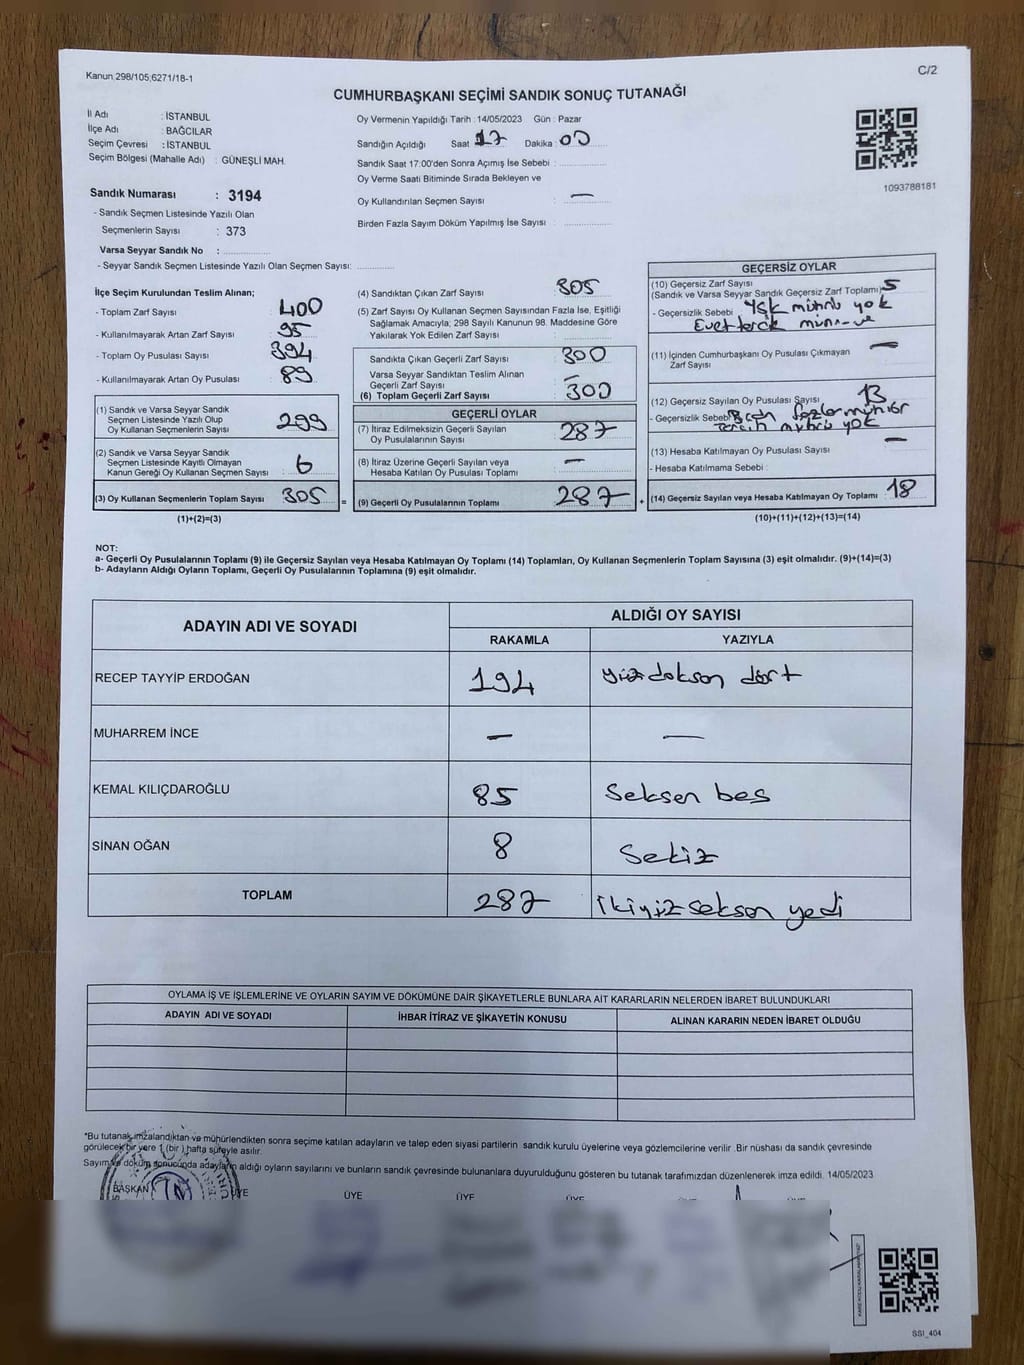 Kanun 298/105;6271/18-1
C/2
CUMHURBAŞKANI SEÇİMİ SANDIK SONUÇ TUTANAĞI
İl Adı : İSTANBUL
İlçe Adı : BAĞCILAR
Seçim Çevresi : İSTANBUL
Seçim Bölgesi (Mahalle Adı) : GÜNEŞLİ MAH.
Sandık Numarası : 3194
- Sandık Seçmen Listesinde Yazılı Olan
Seçmenlerin Sayısı : 373
Varsa Seyyar Sandık No :
- Seyyar Sandık Seçmen Listesinde Yazılı Olan Seçmen Sayısı:
Oy Vermenin Yapıldığı Tarih : 14/05/2023 Gün : Pazar
Sandığın Açıldığı Saat 17 Dakika : 00
Sandık Saat 17:00'den Sonra Açımış İse Sebebi :
Oy Verme Saati Bitiminde Sırada Bekleyen ve
Oy Kullandırılan Seçmen Sayısı : —
Birden Fazla Sayım Döküm Yapılmış İse Sayısı :
1093788181
İlçe Seçim Kurulundan Teslim Alınan;
- Toplam Zarf Sayısı : 400
- Kullanılmayarak Artan Zarf Sayısı : 95
- Toplam Oy Pusulası Sayısı : 394
- Kullanılmayarak Artan Oy Pusulası : 89
(1) Sandık ve Varsa Seyyar Sandık
Seçmen Listesinde Yazılı Olup
Oy Kullanan Seçmenlerin Sayısı : 299
(2) Sandık ve Varsa Seyyar Sandık
Seçmen Listesinde Kayıtlı Olmayan
Kanun Gereği Oy Kullanan Seçmen Sayısı : 6
(3) Oy Kullanan Seçmenlerin Toplam Sayısı : 305 =
(1)+(2)=(3)
(4) Sandıktan Çıkan Zarf Sayısı : 305
(5) Zarf Sayısı Oy Kullanan Seçmen Sayısından Fazla İse, Eşitliği
Sağlamak Amacıyla; 298 Sayılı Kanunun 98. Maddesine Göre
Yakılarak Yok Edilen Zarf Sayısı :
Sandıkta Çıkan Geçerli Zarf Sayısı : 300
Varsa Seyyar Sandıktan Teslim Alınan
Geçerli Zarf Sayısı : —
(6) Toplam Geçerli Zarf Sayısı : 300
GEÇERLİ OYLAR
(7) İtiraz Edilmeksizin Geçerli Sayılan
Oy Pusulalarının Sayısı : 287
(8) İtiraz Üzerine Geçerli Sayılan veya
Hesaba Katılan Oy Pusulası Toplamı : —
(9) Geçerli Oy Pusulalarının Toplamı : 287 +
GEÇERSİZ OYLAR
(10) Geçersiz Zarf Sayısı
(Sandık ve Varsa Seyyar Sandık Geçersiz Zarf Toplamı) 5
- Geçersizlik Sebebi : YSK mührü yok
Evet tercih mührü ve
(11) İçinden Cumhurbaşkanı Oy Pusulası Çıkmayan
Zarf Sayısı —
(12) Geçersiz Sayılan Oy Pusulası Sayısı : 13
- Geçersizlik Sebebi fazla mühür
tercih mührü yok
(13) Hesaba Katılmayan Oy Pusulası Sayısı : —
- Hesaba Katılmama Sebebi :
(14) Geçersiz Sayılan veya Hesaba Katılmayan Oy Toplamı : 18
(10)+(11)+(12)+(13)=(14)
NOT:
a- Geçerli Oy Pusulalarının Toplamı (9) ile Geçersiz Sayılan veya Hesaba Katılmayan Oy Toplamı (14) Toplamları, Oy Kullanan Seçmenlerin Toplam Sayısına (3) eşit olmalıdır. (9)+(14)=(3)
b- Adayların Aldığı Oyların Toplamı, Geçerli Oy Pusulalarının Toplamına (9) eşit olmalıdır.
ADAYIN ADI VE SOYADI ALDIĞI OY SAYISI
RAKAMLA YAZIYLA
RECEP TAYYİP ERDOĞAN 194 yüzdoksan dört
MUHARREM İNCE — —
KEMAL KILIÇDAROĞLU 85 Seksen beş
SİNAN OĞAN 8 Sekiz
TOPLAM 287 ikiyüzseksen yedi
OYLAMA İŞ VE İŞLEMLERİNE VE OYLARIN SAYIM VE DÖKÜMÜNE DAİR ŞİKAYETLERLE BUNLARA AİT KARARLARIN NELERDEN İBARET BULUNDUKLARI
ADAYIN ADI VE SOYADI İHBAR İTİRAZ VE ŞİKAYETİN KONUSU ALINAN KARARIN NEDEN İBARET OLDUĞU
*Bu tutanak imzalandıktan ve mühürlendikten sonra seçime katılan adayların ve talep eden siyasi partilerin sandık kurulu üyelerine veya gözlemcilerine verilir. Bir nüshası da sandık çevresinde
görülecek bir yere 1 (bir) hafta süreyle asılır.
Sayım ve döküm sonucunda adayların aldığı oyların sayılarını ve bunların sandık çevresinde bulunanlara duyurulduğunu gösteren bu tutanak tarafımızdan düzenlenerek imza edildi. 14/05/2023
BAŞKAN ÜYE ÜYE ÜYE ÜYE ÜYE ÜYE
SSI_404